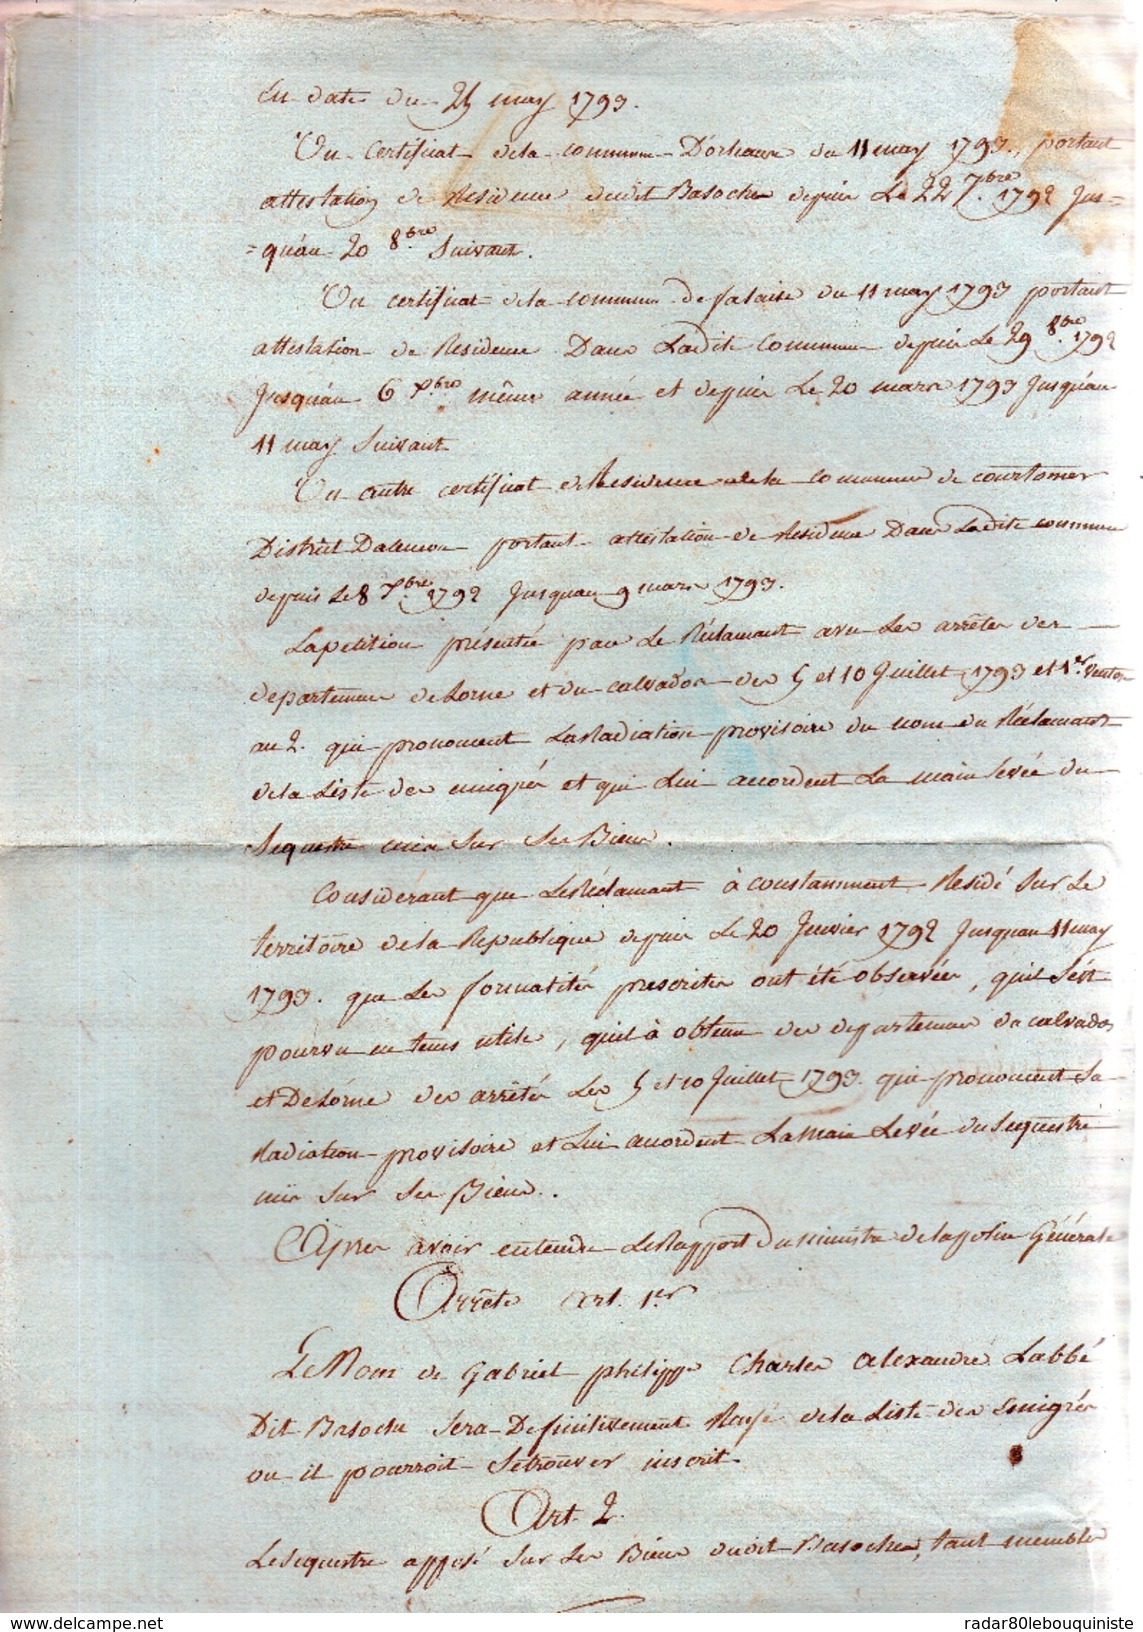 En date du 25 may 1793.
Un certificat de la commune D'orleans du 11 may 1793, portant
attestation de Residence dudit Basoche depuis Le 22 7.bre 1792 Jus=
=qu'au 20 8.bre Suivant.
Un certificat de la commune de falaise du 11 may 1793 portant
attestation de Residence Dans Ladite Commune depuis Le 29 8.bre 1792
Jusqu'au 6 Xbre même année et depuis Le 20 mars 1793 Jusqu'au
11 may Suivant
Un autre certificat de Residence de la commune de courtomer
District Dalencon portant attestation de Residence Dans Ladite commune
depuis Le 8 Xbre 1792 Jusquau 9 mars 1793.
La petition présentée par Le Réclamant avec Les arrêtés des
departemens de Lorne et du calvados des 5 et 10 Juillet 1793 et 1.er Ventose
an 2. qui prononcent La Radiation provisoire du nom du Réclamant
de la Liste des emigrés et qui Lui accordent La main Levée du
Sequestre mis Sur Ses Biens.
Considérant que Le Réclamant à constamment Residé Sur Le
territoire de la Republique depuis Le 20 Janvier 1792 Jusquau 11 may
1793. que Les formalités prescrites ont été observées, quil Sest
pourvu en tems utile, quil à obtenu des departemens du calvados
et De Lórne des arrêtés Les 5 et 10 Juillet 1793. qui prononcent Sa
Radiation provisoire et Lui accordent La Main Levée du Sequestre
mis Sur Ses Biens.
Après avoir entendu Le Rapport du Ministre de la police Générale
Arrête Art. 1.er
Le Nom de Gabriel philippe Charles alexandre Labbé
Dit Basoche Sera Definitivement Rayé de la Liste des Emigrés
ou il pourroit Se trouver inscrit.
Art. 2.
Le Sequestre apposé Sur Les Biens dudit Basoche, tant meubles
radar80lebouquiniste